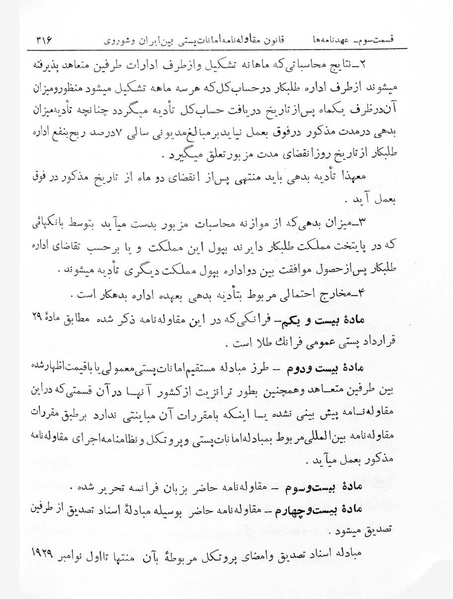 قسمت سوم ـ عهدنامه‌ها قانون مقاوله‌نامه امانات پستی بین ایران و شوروی ۳۱۶
۲ـ نتایج محاسباتی که ماهانه تشکیل و از طرف ادارات طرفین متعاهد پذیرفته
میشوند از طرف اداره طلبکار در حساب کل که هر سه ماهه تشکیل میشود منظور و میزان
آن در ظرف یکماه پس از تاریخ دریافت حساب کل تأدیه میگردد چنانچه تأدیه میزان
بدهی در مدت مذکور در فوق بعمل نیاید بر مبالغ مدیونی سالی ۷ درصد ربح بنفع اداره
طلبکار از تاریخ روز انقضای مدت مزبور تعلق میگیرد .
معهذا تأدیه بدهی باید منتهی پس از انقضای دو ماه از تاریخ مذکور در فوق
بعمل آید .
۳ـ میزان بدهی که از موازنه محاسبات مزبور بدست میآید بتوسط بانکهائی
که در پایتخت مملکت طلبکار دایرند بپول این مملکت و یا بر حسب تقاضای اداره
طلبکار پس از حصول موافقت بین دو اداره بپول مملکت دیگری تأدیه میشوند .
۴ـ مخارج احتمالی مربوط بتأدیه بدهی بعهده اداره بدهکار است .
مادهٔ بیست و یکم ـ فرانکی که در این مقاوله‌نامه ذکر شده مطابق مادهٔ ۲۹
قرارداد پستی عمومی فرانک طلا است .
مادهٔ بیست و دوم ـ طرز مبادله مستقیم امانات پستی معمولی یا با قیمت اظهار شده
بین طرفین متعاهد و همچنین بطور ترانزیت از کشور آنها در آن قسمتی که در این
مقاوله‌نامه پیش بینی نشده یا اینکه با مقررات آن مباینتی ندارد بر طبق مقررات
مقاوله‌نامه بین‌المللی مربوط بمبادله امانات پستی و پروتکل و نظامنامه اجرای مقاوله‌نامه
مذکور بعمل میآید .
مادهٔ بیست و سوم ـ مقاوله‌نامه حاضر بزبان فرانسه تحریر شده .
مادهٔ بیست و چهارم ـ مقاوله‌نامه حاضر بوسیله مبادلهٔ اسناد تصدیق از طرفین
تصدیق میشود .
مبادله اسناد تصدیق و امضای پروتکل مربوطهٔ بآن منتها تا اول نوامبر ۱۹۲۹